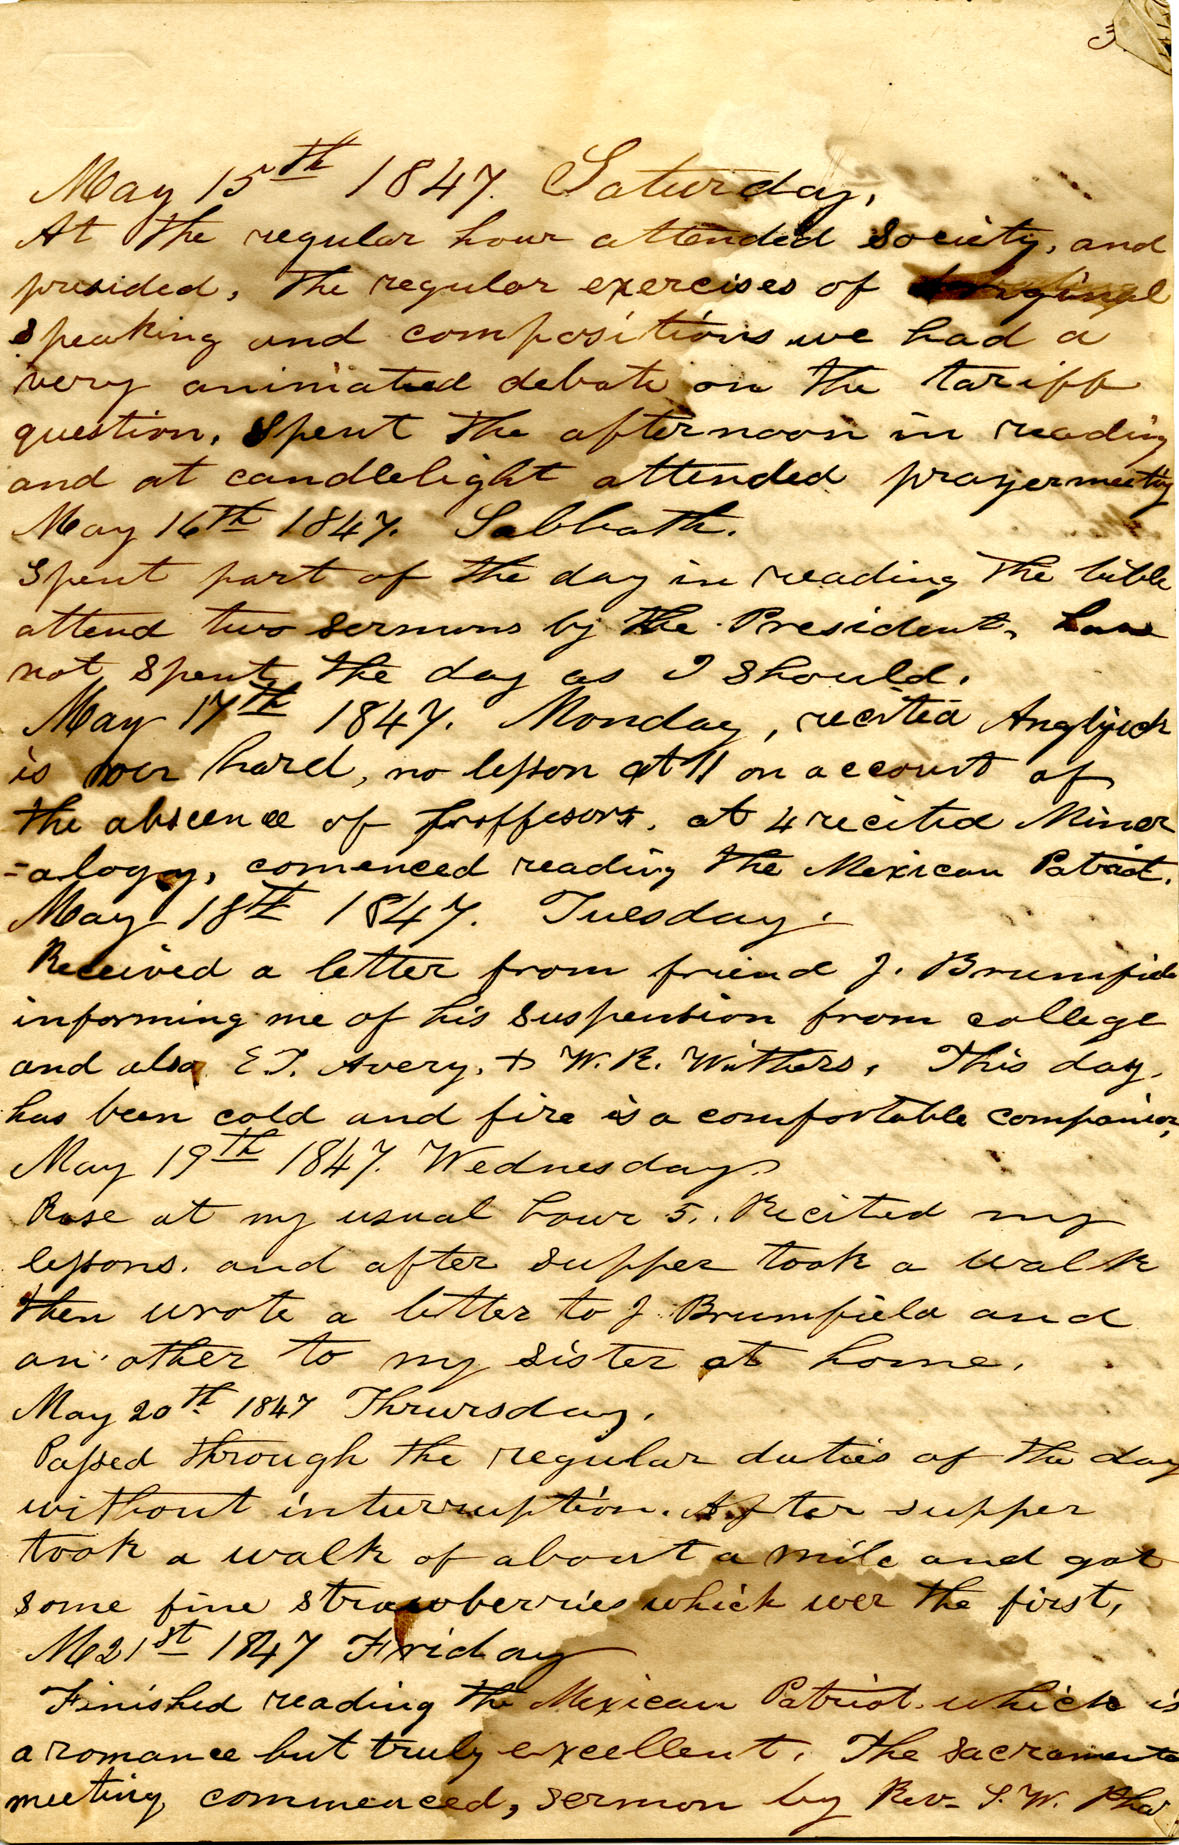 3
May 15th 1847. Saturday.
At the regular hour attended Society, and
presided, The regular exercises of original
speaking and compositions we had a
very animated debate on the tariff
question. Spent the afternoon in reading
and at candlelight attended prayermeeting
May 16th 1847. Sabbath.
Spent part of the day in reading the bible
attend two sermons by the President, have
not spent the day as I should.
May 17th 1847. Monday, recited
is hard, no lesson at 11 on account of
the abscence of proffesors. at 4 recited Miner
=alogy, comenced reading the Mexican Patriot.
May 18th 1847. Tuesday.
Received a letter from friend J. Brumfield
informing me of his suspension from college
and also E T. Avery. + W. R. Withers. This day
has been cold and fire is a comfortable companion,
May 19th 1847. Wednesday.
Rose at my usual hour 5.. Recited my
lessons. and after supper took a walk
then wrote a letter to J Brumfield and
an other to my sister at home.
May 20th 1847 Thrursday.
Passed through the regular duties of the day
without interruption. After supper
took a walk of about a mile and got
some fine strawberries which wer the first,
M 21st 1847 Friday
Finished reading the Mexican Patriot. which is
a romance but truly excellent. The sacramente
meeting commenced, sermon by Rev- S. W.